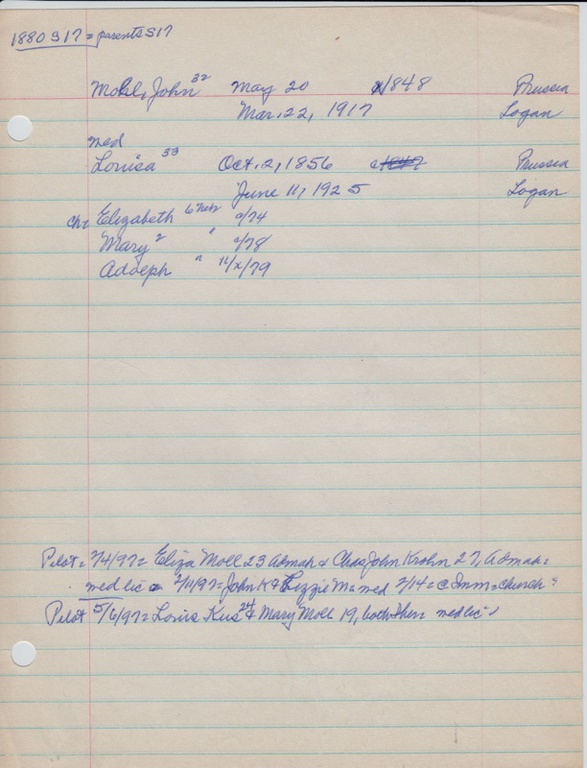 1880 S17 = parents S17
Moll, John 32 May 20 1848 Prussia
Mar. 22, 1917 Logan
med
Louisa 33 Oct. 2, 1856 Prussia
June 11, 1925 Logan
ch = Elizabeth 6 Nebr c/74
Mary 2 " c/78
Adolph " 11/x/79
Pilot = 2/4/97 = Eliza Moll 23 Admah & Chas John Krohn 27, Admah =
med lic 2/11/97 = John K & Lizzie M = med 2/14 = c Imm. church =
Pilot 5/6/97 = Louis Kus 24 & Mary Moll 19, both Herm med lic =